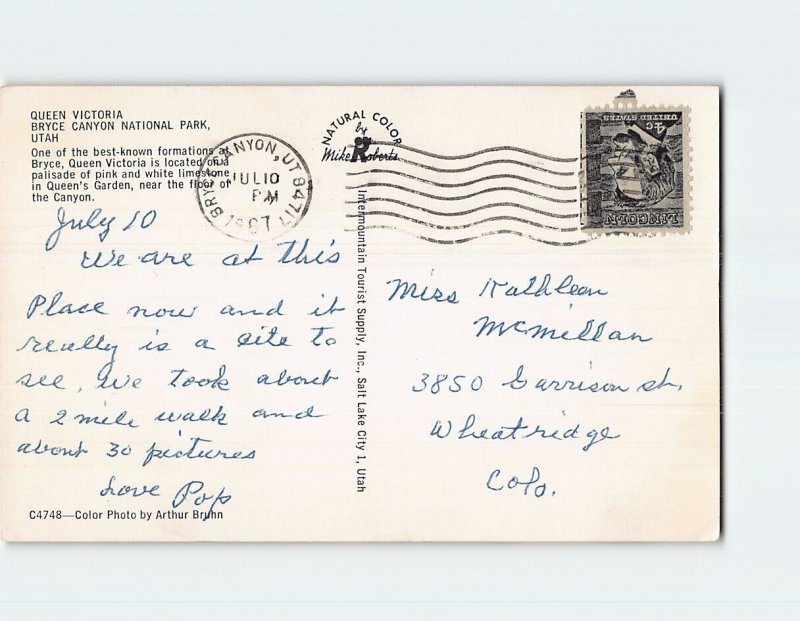 QUEEN VICTORIA
BRYCE CANYON NATIONAL PARK,
UTAH
One of the best-known formations at
Bryce, Queen Victoria is located on a
palisade of pink and white limestone
in Queen's Garden, near the floor of
the Canyon.
BRYCE CANYON, UT 84717
JUL 10
PM
1967
NATURAL COLOR
by
Mike Roberts
4c
UNITED STATES
LINCOLN
July 10
We are at this
Place now and it
really is a site to
see, We took about
a 2 mile walk and
about 30 pictures
Love Pop
C4748—Color Photo by Arthur Bruhn
Intermountain Tourist Supply, Inc., Salt Lake City 1, Utah
Miss Kathleen
McMillan
3850 Garrison st.
Wheatridge
Colo.